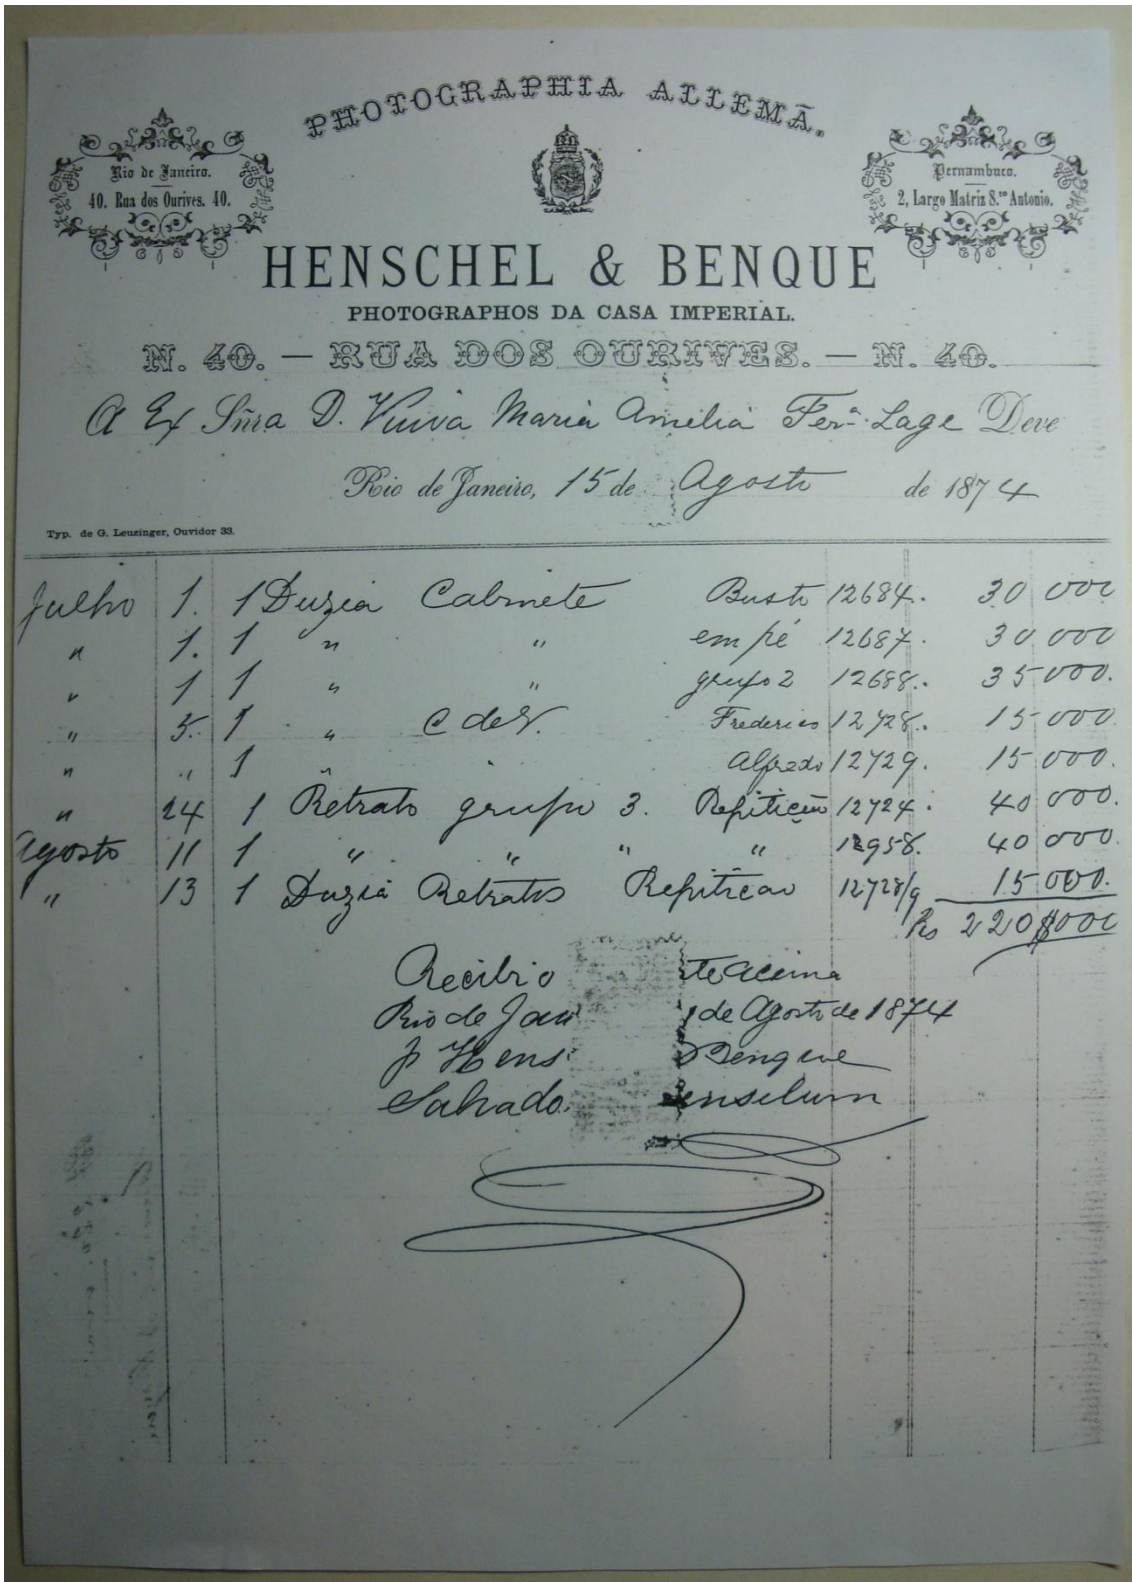 PHOTOGRAPHIA ALLEMÃ.
Rio de Janeiro.
40. Rua dos Ourives. 40.
Pernambuco.
2, Largo Matriz S.to Antonio.
HENSCHEL & BENQUE
PHOTOGRAPHOS DA CASA IMPERIAL.
N. 40. — RUA DOS OURIVES. — N. 40.
A Ex Sñra D. Viuva Maria Amelia Fer.a Lage Deve
Rio de Janeiro, 15 de Agosto de 1874
Typ. de G. Leuzinger, Ouvidor 33.
Julho 1. 1 Duzia Cabinete Busto 12684. 30 000
" 1. 1 " " em pé 12687. 30 000
" 1 1 " " grupo 2 12688. 35 000.
" 5. 1 " C de V. Frederico 12728. 15 000
" " 1 " " Alfredo 12729. 15 000.
" 24 1 Retrato grupo 3. Repitição 12724. 40 000.
Agosto 11 1 " " " " 12958. 40 000.
" 13 1 Duzia Retratos Repiticao 12728/9 15 000.
Rs 220$000
Recibio te acima
Rio de Jan de Agosto de 1874
p Hens Benque